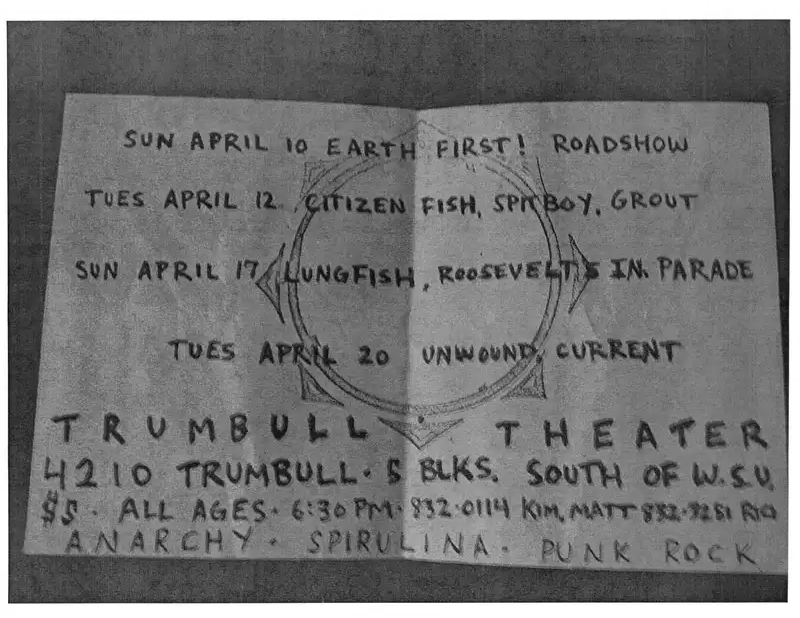 SUN APRIL 10 EARTH FIRST! ROADSHOW
TUES APRIL 12 CITIZEN FISH, SPITBOY, GROUT
SUN APRIL 17 LUNGFISH, ROOSEVELT'S IN. PARADE
TUES APRIL 20 UNWOUND, CURRENT
TRUMBULL THEATER
4210 TRUMBULL · 5 BLKS. SOUTH OF W.S.U.
$5 · ALL AGES · 6:30 PM · 832·0114 KIM, MATT 832·9281 RIO
ANARCHY · SPIRULINA · PUNK ROCK